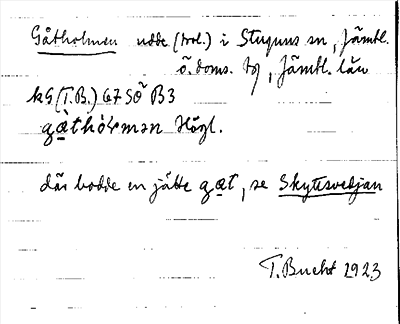 Gåtholmen udde (trol.) i Stuguns sn, Jämtl.
ö. doms. tg, Jämtl. län
kG (T.B.) 67 SÖ B3
gæ̀thòɫmən Högl.
där bodde en jätte gæt, se Skyttsvedjan
T. Bucht 1923